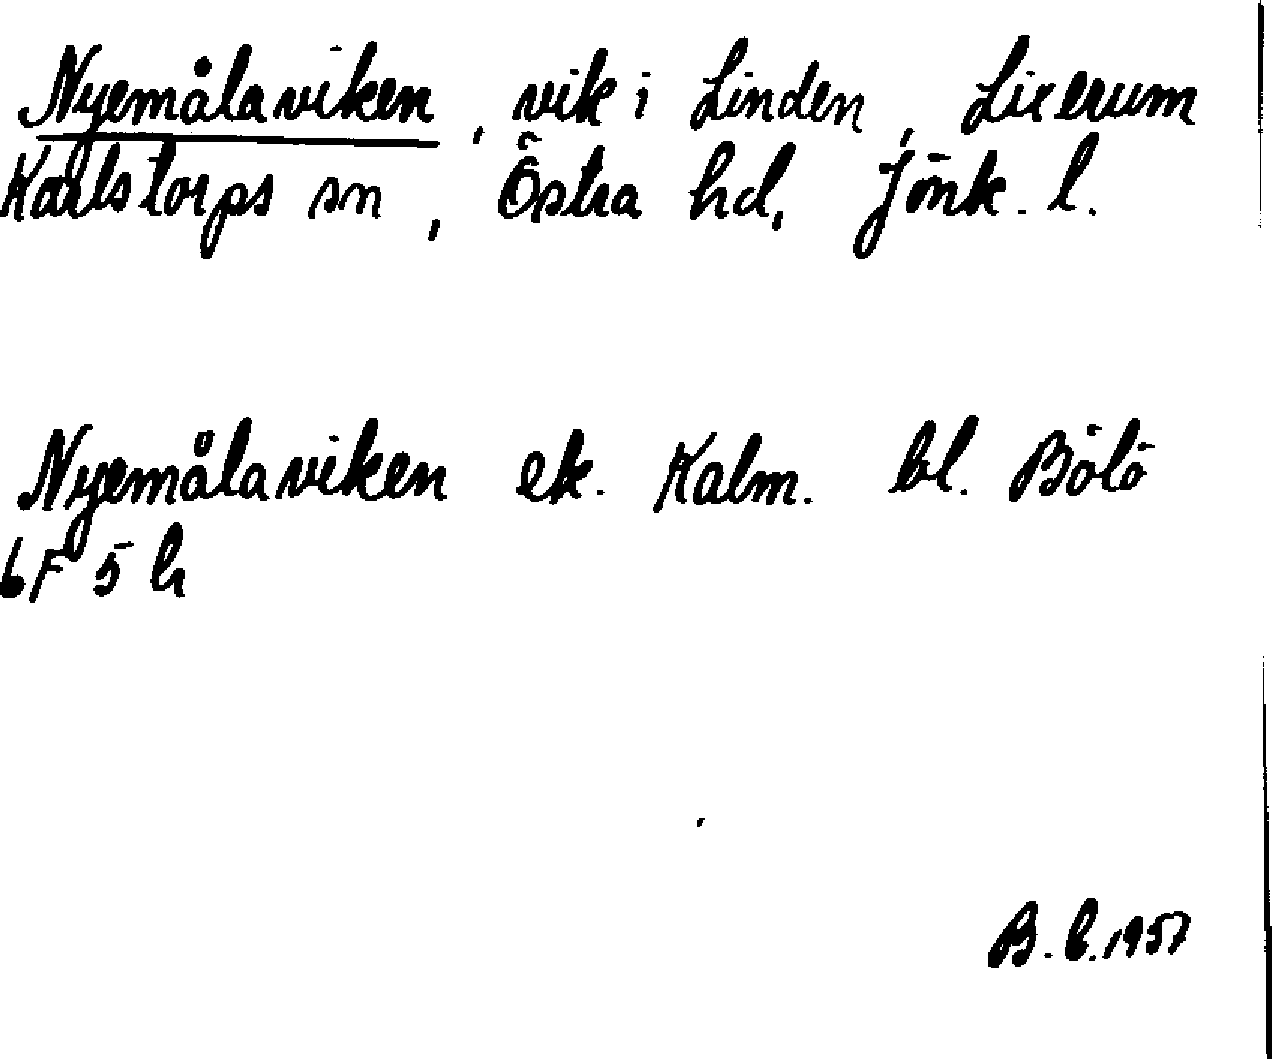 Nyemålaviken, vik i Linden, Lixerum
Karlstorps sn, Östra hd, Jönk. l.
Nyemålaviken ek. Kalm. bl. Bölö
6F 5 h
B.L. 1957